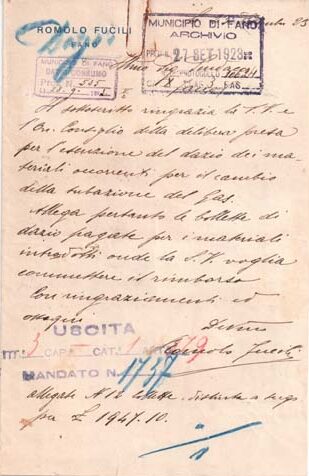 ROMOLO FUCILI
FANO
Dazio
MUNICIPIO DI FANO
ARCHIVIO
27 SET 1923
PROTOCOLLO
MUNICIPIO DI FANO
DAZIO CONSUMO
Il sottoscritto ringrazia la S.V. e
l'On. Consiglio della delibera presa
per l'esenzione del dazio dei ma-
teriali occorrenti per il cambio
della tubazione del Gas.
Allega pertanto le bollette di
dazio pagate per i materiali
introdotti onde la S.V. voglia
commettere il rimborso
Con ringraziamenti ed
ossequi
Dev.mo
Romolo Fucili
USCITA
TIT. 3 CAP. CAT. 1 ART. 79
MANDATO N. 1737
allegate N 12 bollette
per £ 1947.10.